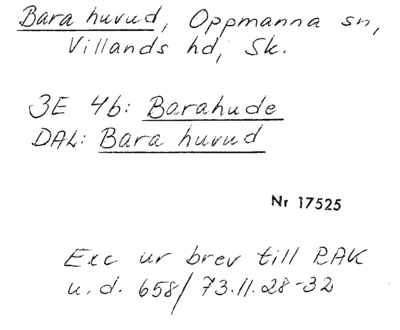 Bara huvud, Oppmanna sn,
Villands hd, Sk.
3E 4b: Barahude
DAL: Bara huvud
Nr 17525
Exc ur brev till RAK
u.d. 658/73.11.28-32